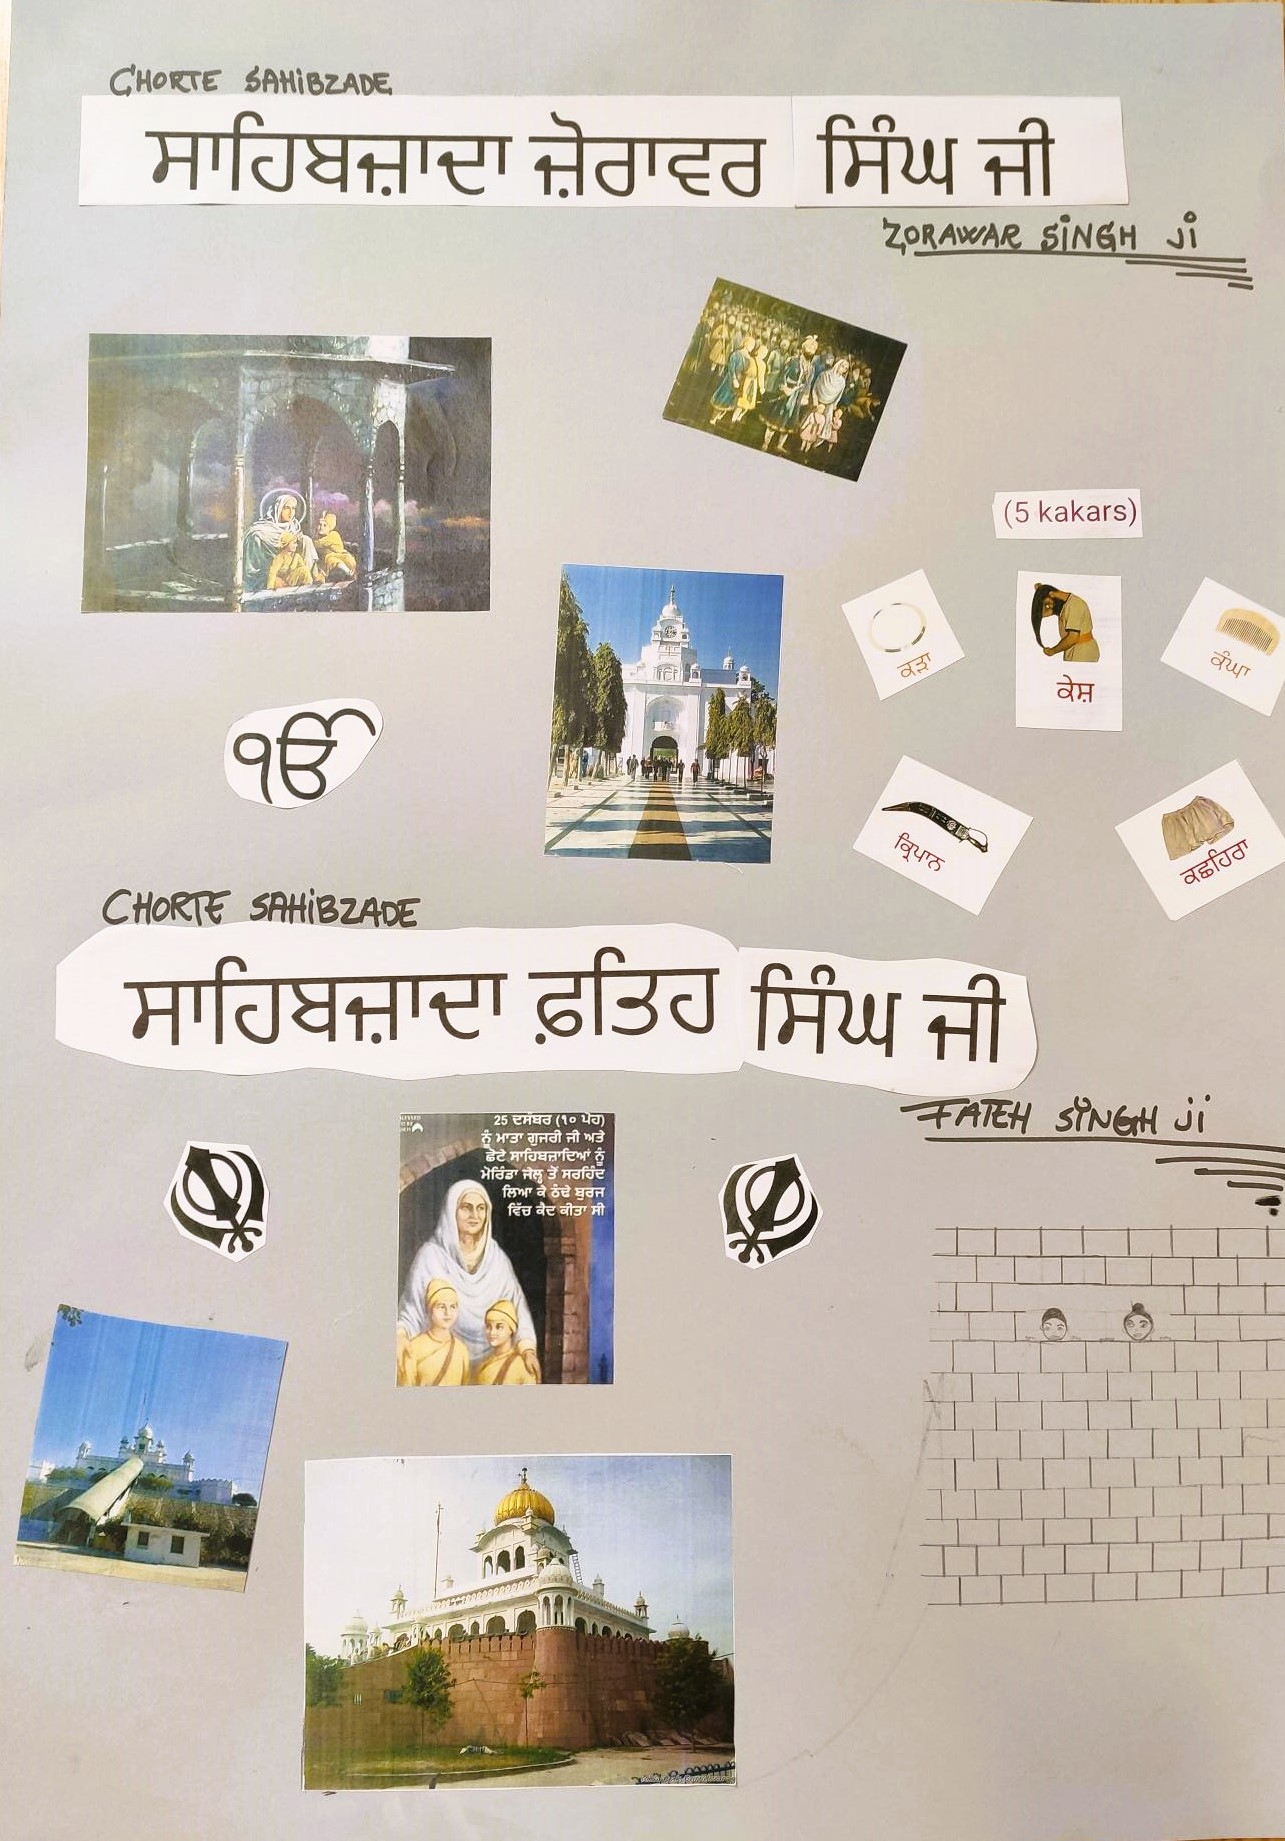 CHORTE SAHIBZADE
ਸਾਹਿਬਜ਼ਾਦਾ ਜ਼ੋਰਾਵਰ ਸਿੰਘ ਜੀ
ZORAWAR SINGH Ji
(5 kakars)
ਕੜਾ
ਕੇਸ਼
ਕੰਘਾ
ੴ
ਕ੍ਰਿਪਾਨ
ਕਛਹਿਰਾ
CHORTE SAHIBZADE
ਸਾਹਿਬਜ਼ਾਦਾ ਫ਼ਤਿਹ ਸਿੰਘ ਜੀ
FATEH SINGH Ji
25 ਦਸੰਬਰ (੧੦ ਪੋਹ)
ਨੂੰ ਮਾਤਾ ਗੁਜਰੀ ਜੀ ਅਤੇ
ਛੋਟੇ ਸਾਹਿਬਜ਼ਾਦਿਆਂ ਨੂੰ
ਮੋਰਿੰਡਾ ਜੇਲ੍ਹ ਤੋਂ ਸਰਹਿੰਦ
ਲਿਆ ਕੇ ਠੰਢੇ ਬੁਰਜ
ਵਿੱਚ ਕੈਦ ਕੀਤਾ ਸੀ